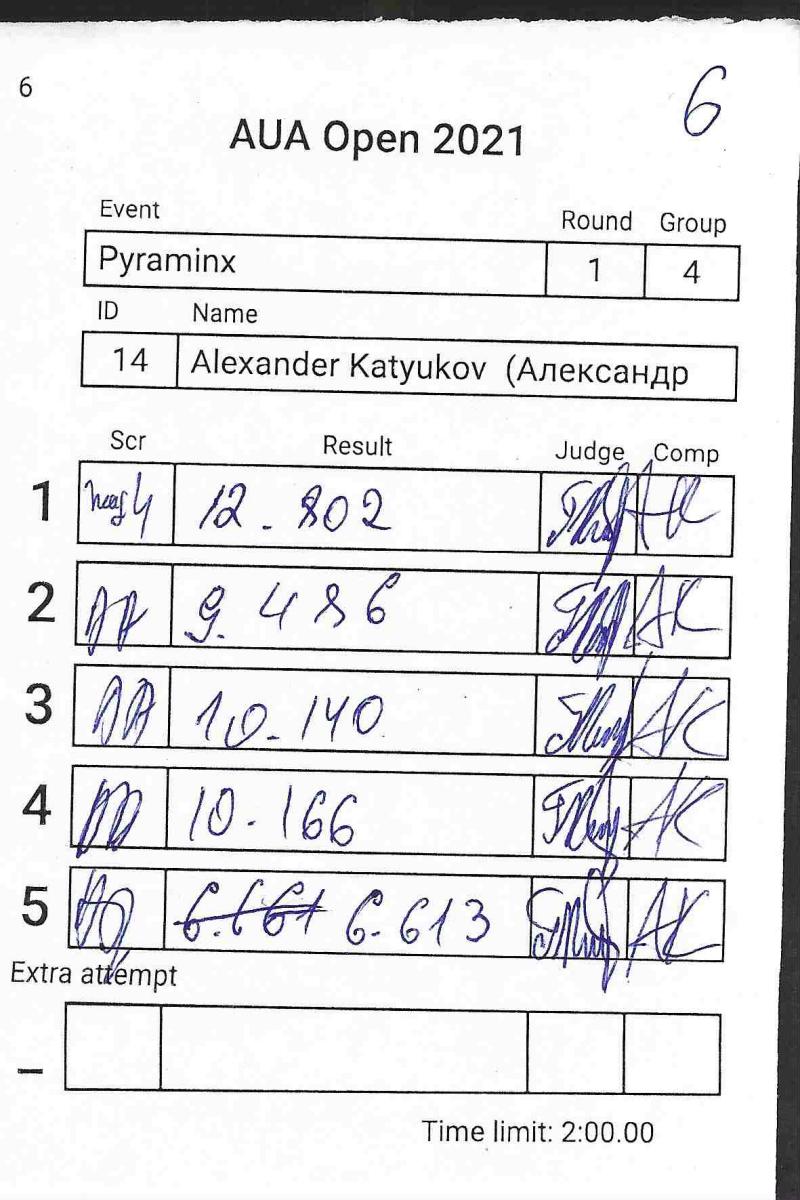 6
6
AUA Open 2021
Event Round Group
Pyraminx 1 4
ID Name
14 Alexander Katyukov (Александр
Scr Result Judge Comp
1 12.802
2 9.486 AK
3 10.140 AK
4 10.166 AK
5 6.661 6.613 AK
Extra attempt
–
Time limit: 2:00.00